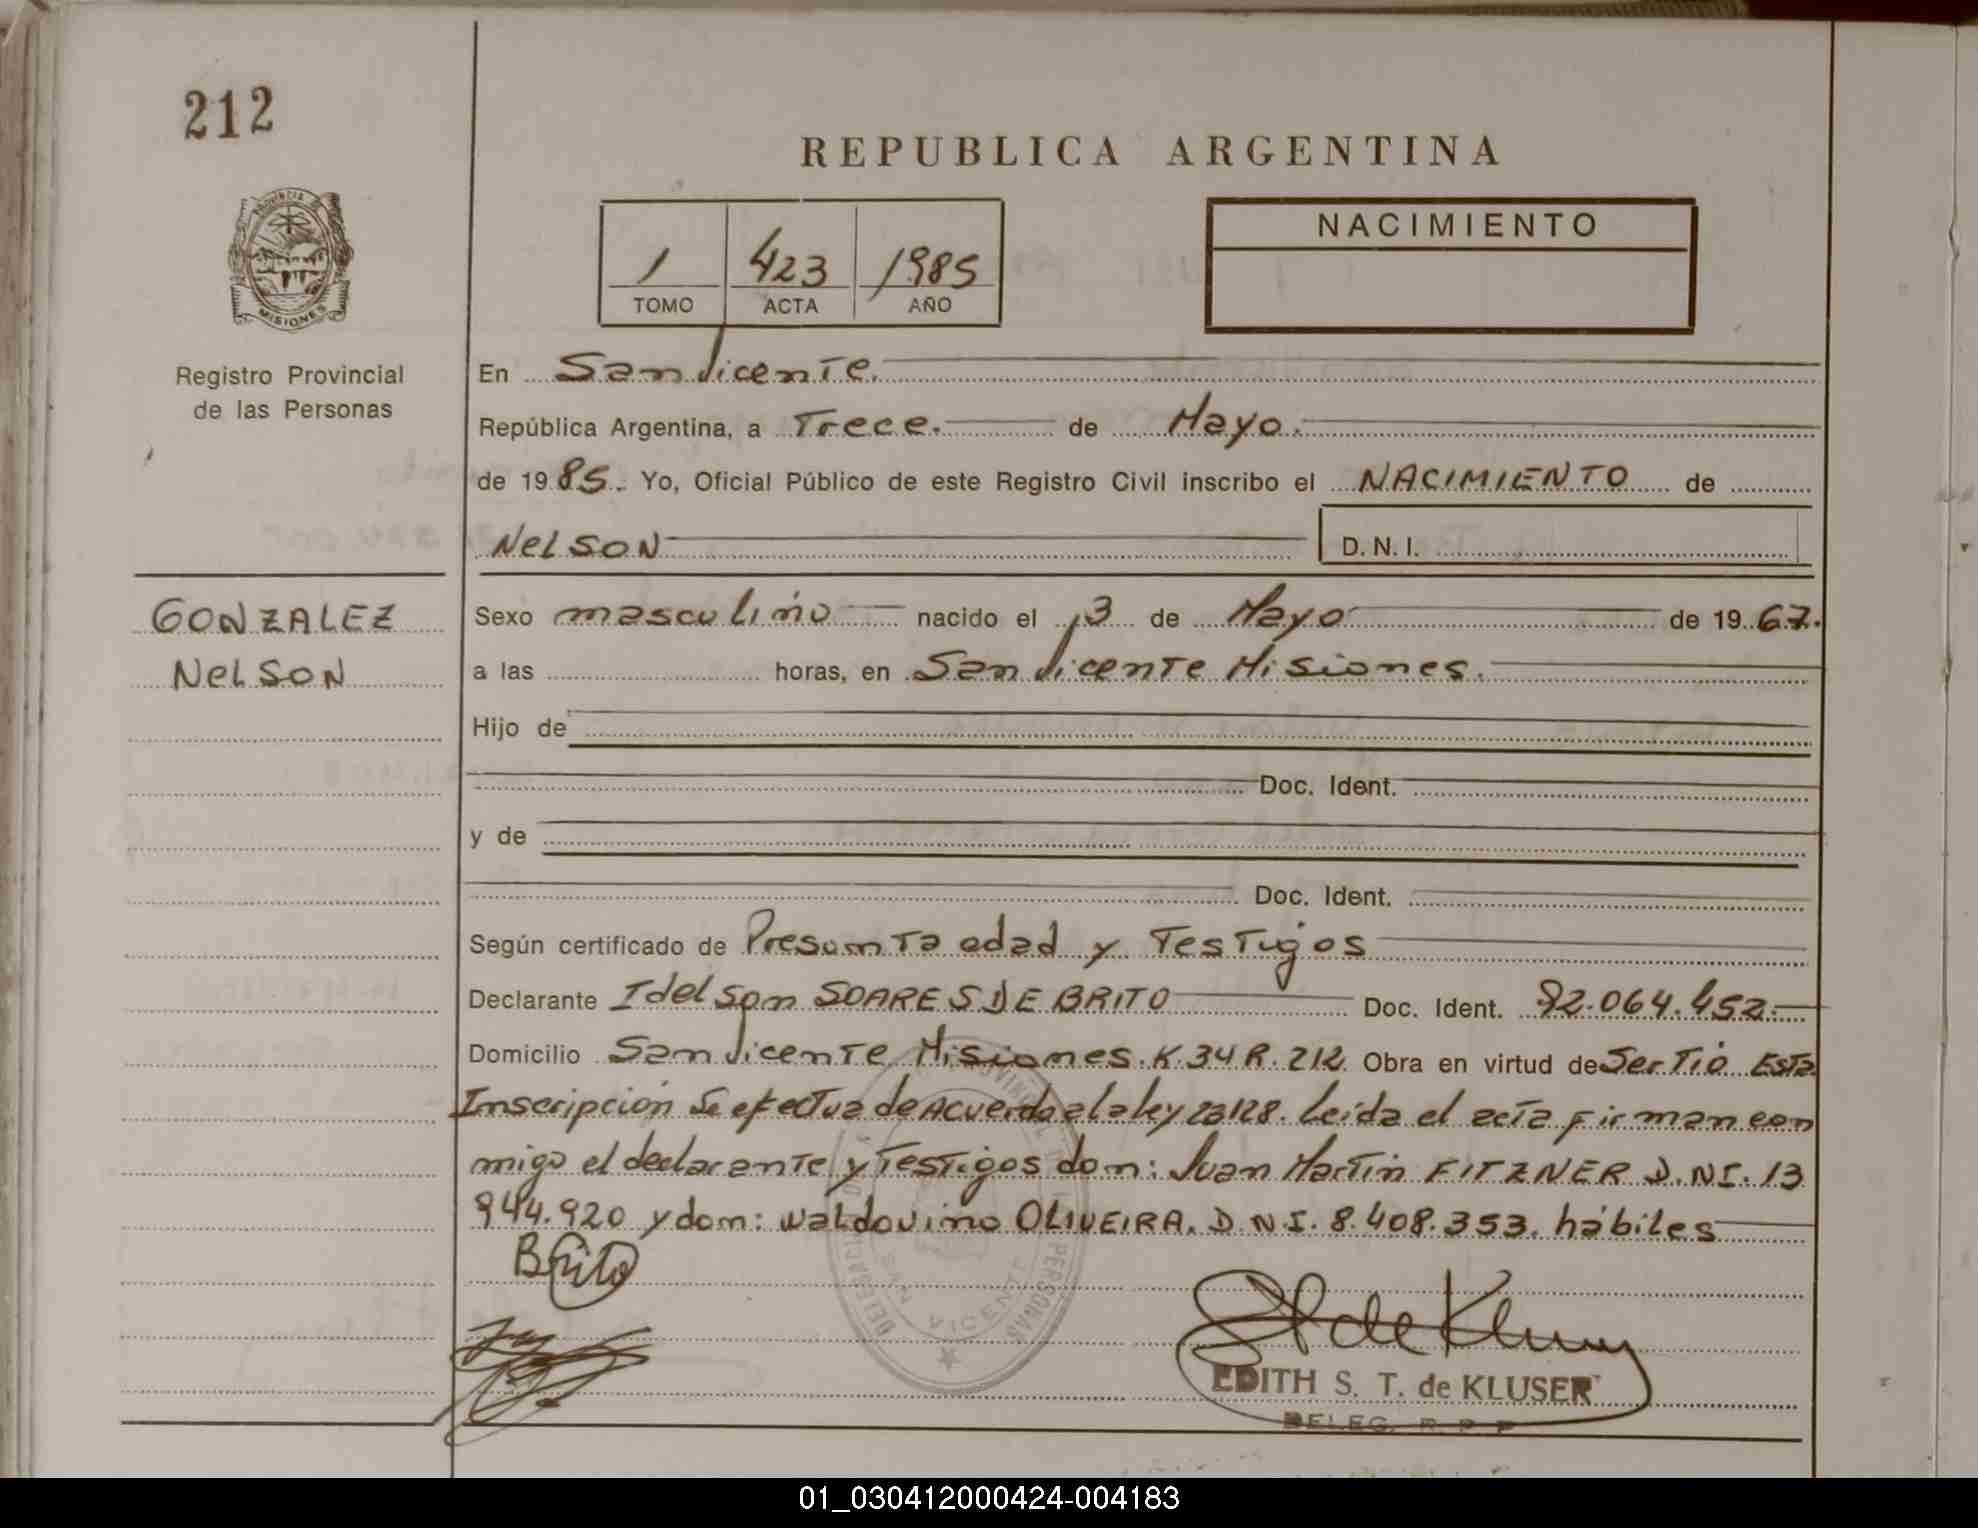 212
REPUBLICA ARGENTINA
PROVINCIA
MISIONES
1 423 1985
TOMO ACTA AÑO
NACIMIENTO
Registro Provincial
de las Personas
En San Vicente.
República Argentina, a Trece. de Mayo.
de 1985. Yo, Oficial Público de este Registro Civil inscribo el NACIMIENTO de
NelSON D. N. I.
GONZALEZ
NelSON
Sexo masculino nacido el 3 de Mayo de 1967.
a las horas, en San Vicente Misiones.
Hijo de
Doc. Ident.
y de
Doc. Ident.
Según certificado de Presunta edad y Testigos
Declarante Idelson SOARES DE BRITO Doc. Ident. 92.064.452.
Domicilio San Vicente Misiones. K. 34 R. 212. Obra en virtud de Ser Tio Esta
Inscripción Se efectua de Acuerdo a la ley 23128. Leída el acta firman con
migo el declarante y Testigos don: Juan Martin FITZNER D.N.I. 13
944.920 y don: Waldovino OLIVEIRA. D.N.I. 8.408.353. hábiles
Brito
de Kluser
EDITH S. T. de KLUSER
DELEG. R. P. P.
01_030412000424-004183